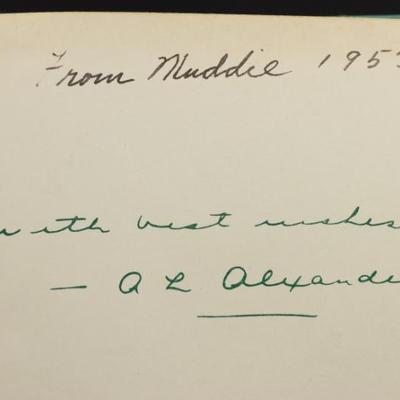 From Muddie 1953
with best wishes
— A L Alexande